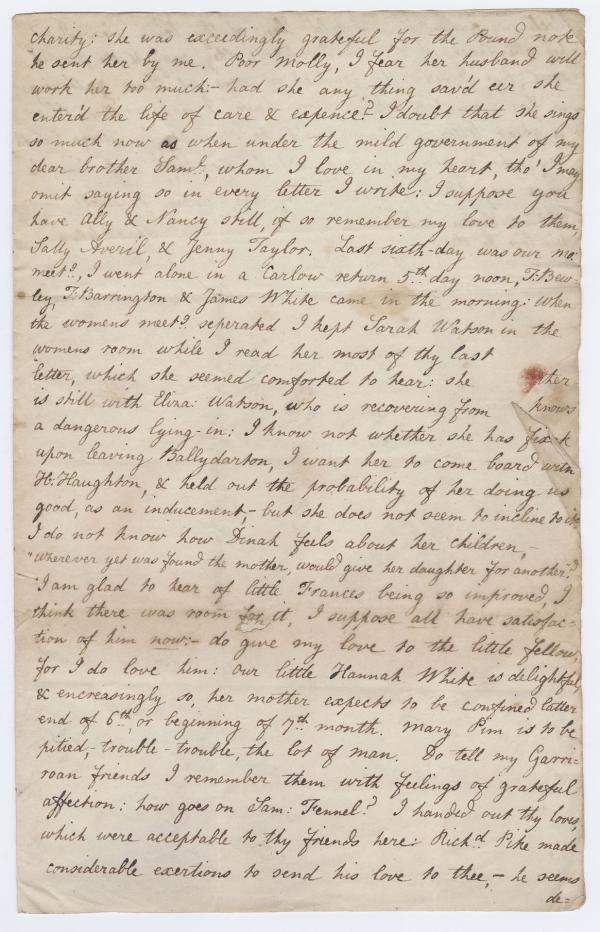 charity: she was exceedingly grateful for the Pound note
he sent her by me. Poor Molly, I fear her husband will
work her too much:- had she any thing sav'd eer she
enter'd the life of care & expence? I doubt that she sings
so much now as when under the mild government of my
dear brother Saml., whom I love in my heart, tho' I may
omit saying so in every letter I write: I suppose you
have Ally & Nancy still, if so remember my love to them,
Sally Averil, & Jenny Taylor. Last sixth-day was our mo:
meetg., I went alone in a Carlow return 5th day noon, T: Bew-
ley, T: Barrington & James White came in the morning: when
the womens meetg. seperated I kept Sarah Watson in the
womens room while I read her most of thy last
letter, which she seemed comforted to hear: she ther
is still with Eliza: Watson, who is recovering from knows
a dangerous lying-in: I know not whether she has fix'd
upon leaving Ballydarton, I want her to come board with
H: Haughton, & held out the probability of her doing us
good, as an inducement,- but she does not seem to incline to it:
I do not know how Dinah feels about her children,-
"wherever yet was found the mother, would give her daughter for another?"
I am glad to hear of little Frances being so improved, I
think there was room for it, I suppose all have satisfac-
tion of him now:- do give my love to the little fellow,
for I do love him: our little Hannah White is delightful,
& encreasingly so, her mother expects to be confined latter
end of 6th, or beginning of 7th month. Mary Pim is to be
pitied,- trouble - trouble, the lot of man. Do tell my Garri-
roan friends I remember them with feelings of grateful
affection: how goes on Sam: Fennel? I handed out thy loves,
which were acceptable to thy friends here: Richd. Pike made
considerable exertions to send his love to thee,- he seems
de=